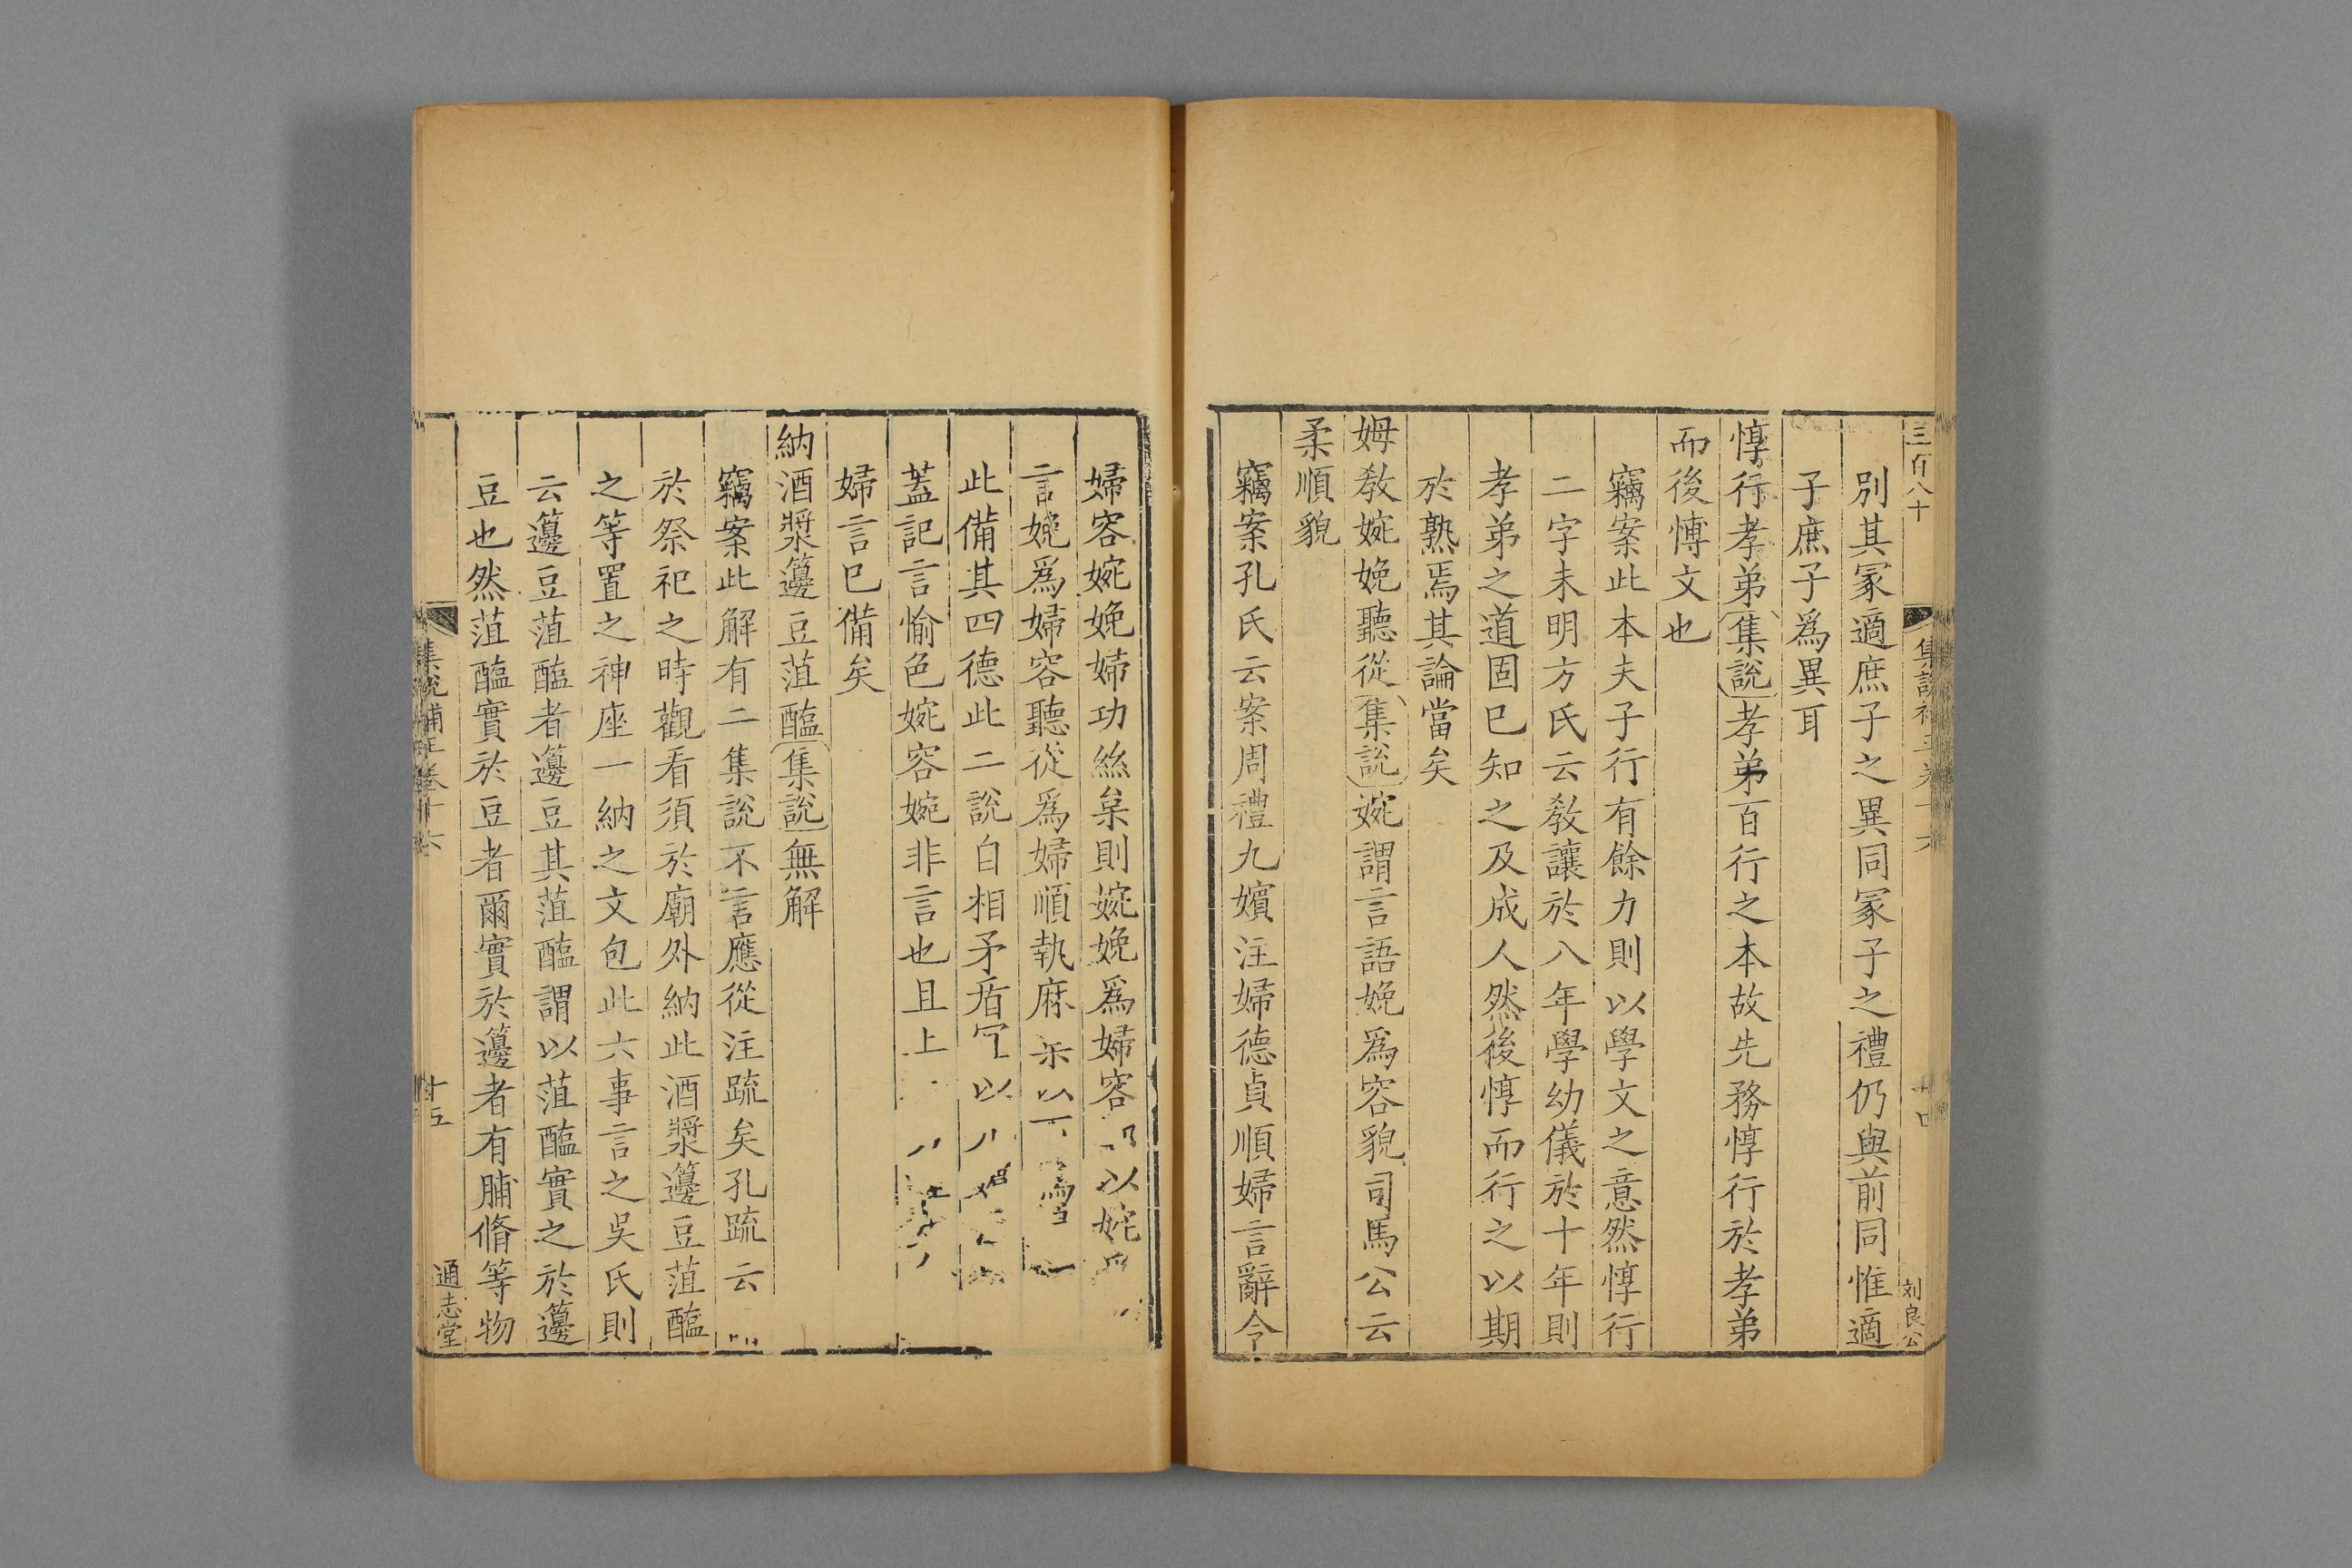 三百八十
別其冢適庶子之異同冢子之禮仍與前同惟適
子庶子爲異耳
惇行孝弟集說孝弟百行之本故先務惇行於孝弟
而後慱文也
竊案此本夫子行有餘力則以學文之意然惇行
二字未明方氏云敎讓於八年學幼儀於十年則
孝弟之道固已知之及成人然後惇而行之以期
於熟焉其論當矣
姆敎婉娩聽從集說婉謂言語娩爲容貌司馬公云
柔順貌
竊案孔氏云案周禮九嬪注婦德貞順婦言辭令
刘良公
婦容婉娩婦功絲枲則婉娩爲婦容以婉
言娩爲婦容聽從爲婦順執麻以一
此備其四德此二說自相矛盾以
蓋記言愉色婉容婉非言也且上
婦言已備矣
納酒漿籩豆菹醢集說無解
竊案此解有二集說不言應從注疏矣孔疏云
於祭祀之時觀看須於廟外納此酒漿籩豆菹醢
之等置之神座一納之文包此六事言之吳氏則
云籩豆菹醢者籩豆其菹醢謂以菹醢實之於籩
豆也然菹醢實於豆者爾實於籩者有脯脩等物
集說補正卷十六
十五
通志堂